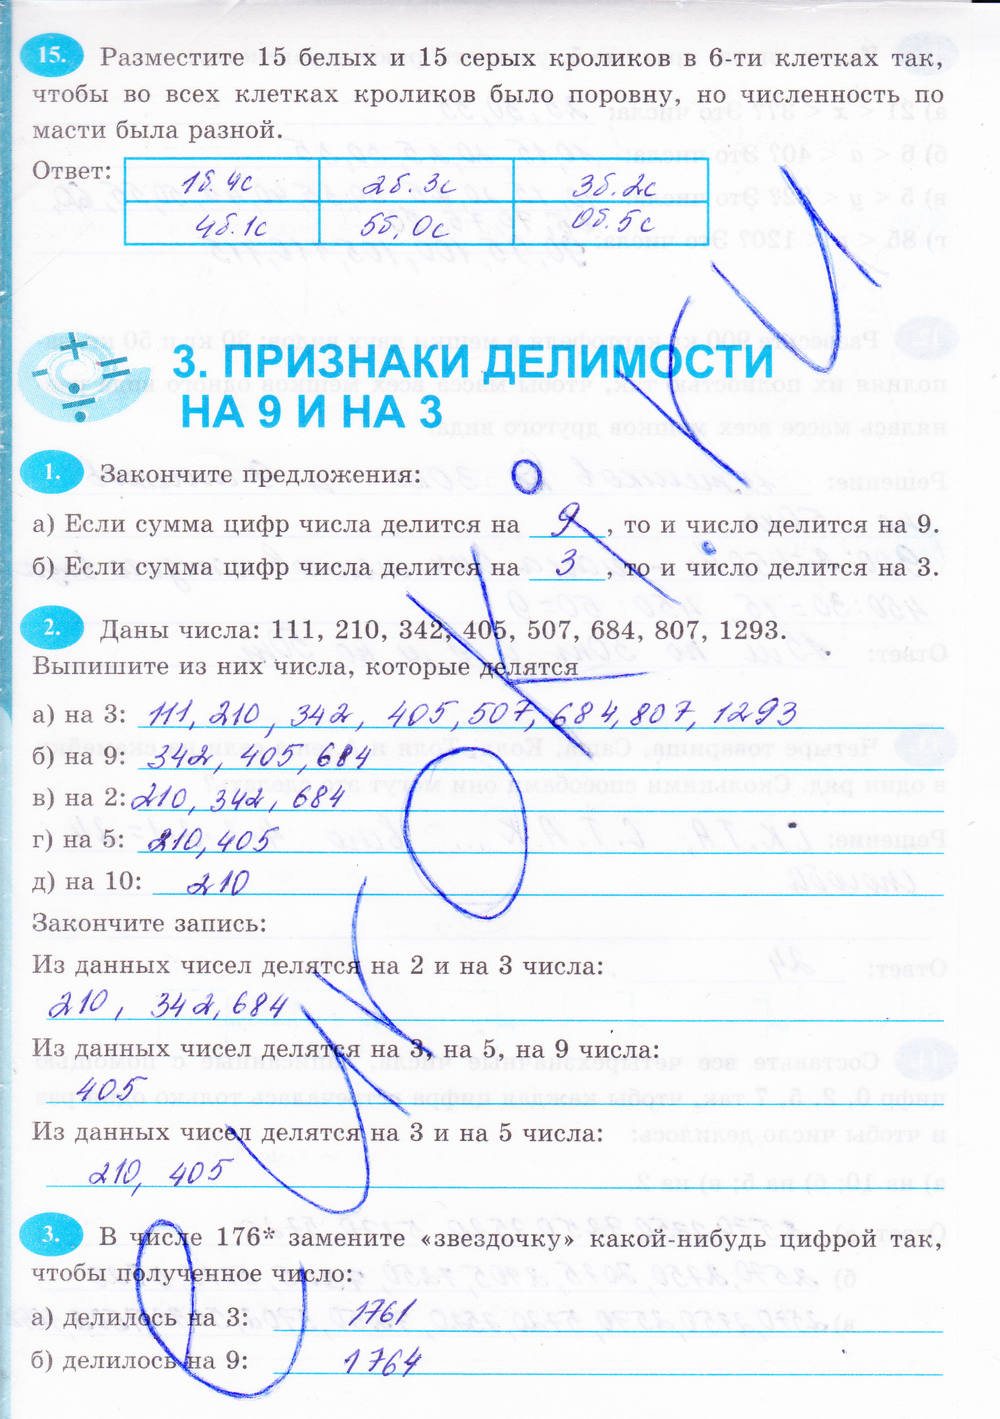 15. Разместите 15 белых и 15 серых кроликов в 6-ти клетках так,
чтобы во всех клетках кроликов было поровну, но численность по
масти была разной.
Ответ: 1б. 4с 2б. 3с 3б. 2с
4б. 1с 5б, 0с 0б. 5с
3. ПРИЗНАКИ ДЕЛИМОСТИ
НА 9 И НА 3
1. Закончите предложения:
а) Если сумма цифр числа делится на 9, то и число делится на 9.
б) Если сумма цифр числа делится на 3, то и число делится на 3.
2. Даны числа: 111, 210, 342, 405, 507, 684, 807, 1293.
Выпишите из них числа, которые делятся
а) на 3: 111, 210, 342, 405, 507, 684, 807, 1293
б) на 9: 342, 405, 684
в) на 2: 210, 342, 684
г) на 5: 210, 405
д) на 10: 210
Закончите запись:
Из данных чисел делятся на 2 и на 3 числа:
210, 342, 684
Из данных чисел делятся на 3, на 5, на 9 числа:
405
Из данных чисел делятся на 3 и на 5 числа:
210, 405
3. В числе 176* замените «звездочку» какой-нибудь цифрой так,
чтобы полученное число:
а) делилось на 3: 1761
б) делилось на 9: 1764